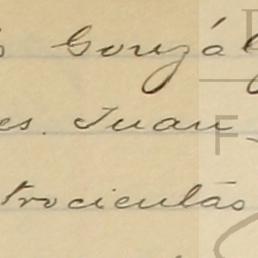 s Gonzál
es. Juan
trocientas